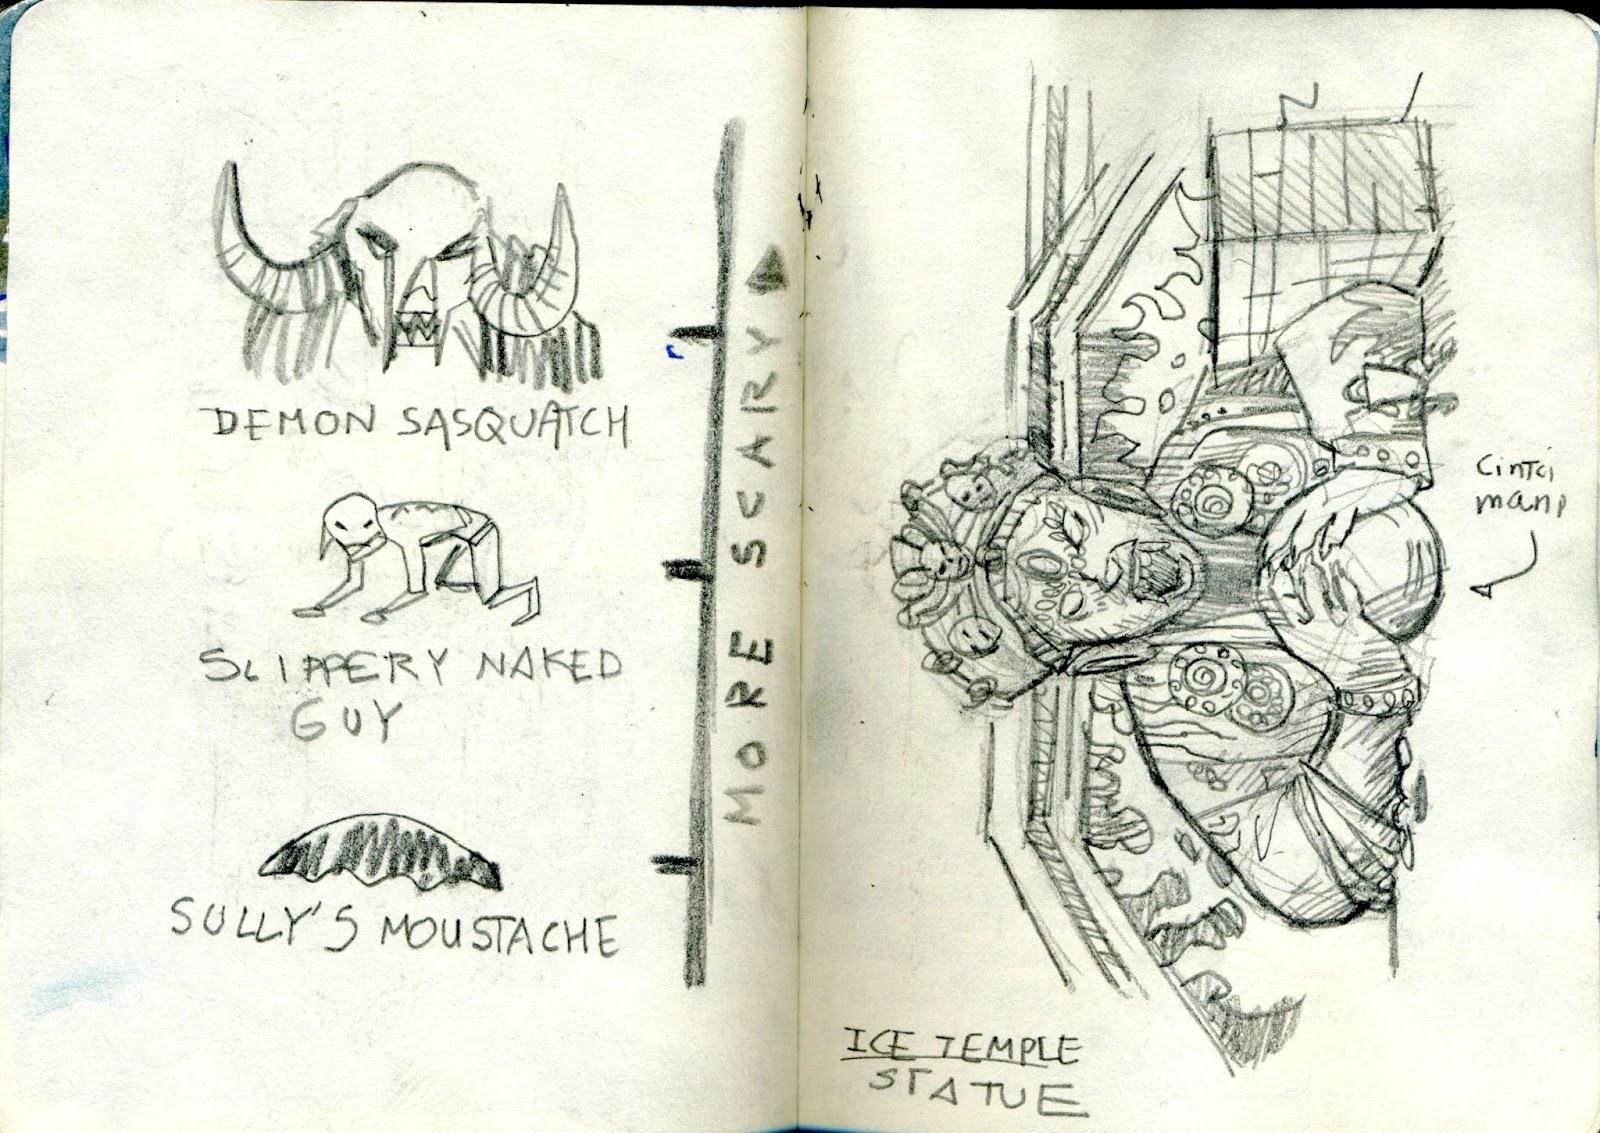 DEMON SASQUATCH
SLIPPERY NAKED
GUY
SULLY'S MOUSTACHE
MORE SCARY
Cintāi
mani
ICE TEMPLE
STATUE